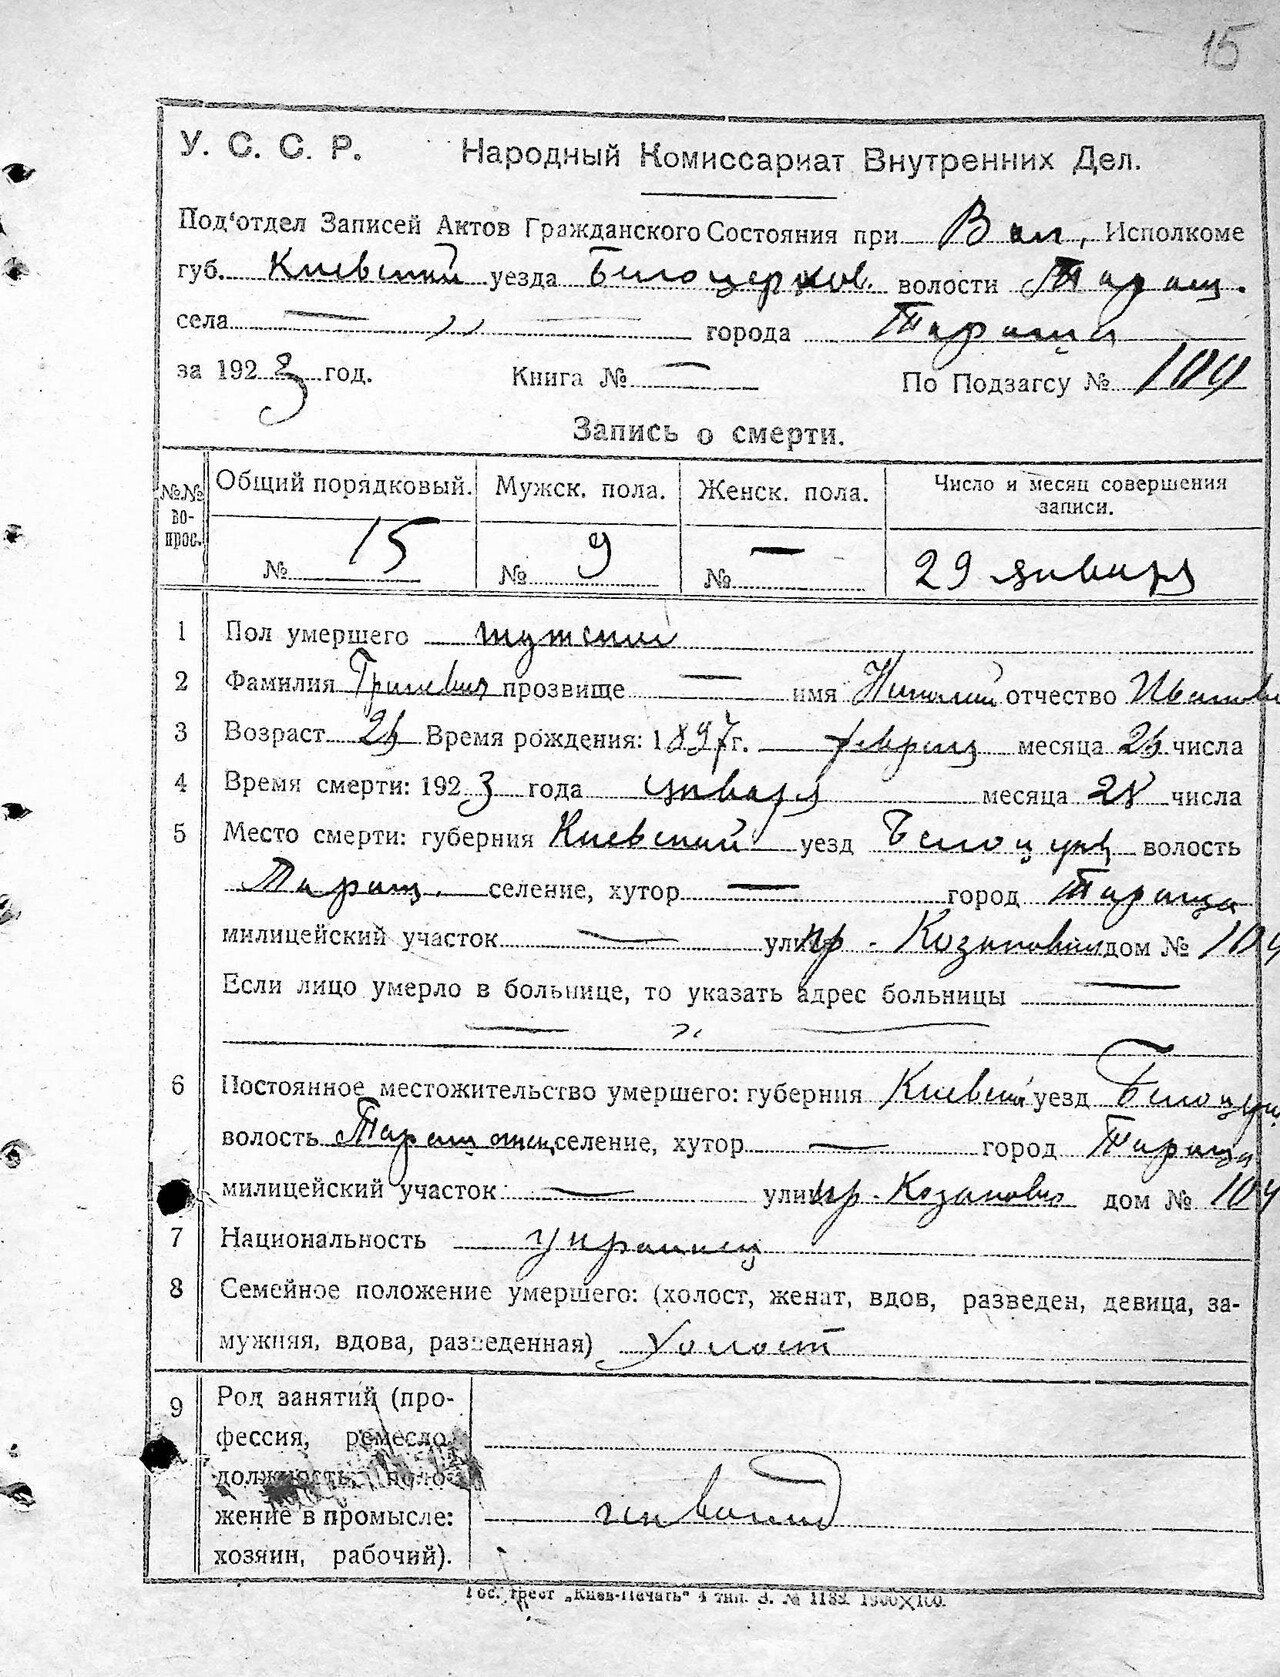 15
У. С. С. Р. Народный Комиссариат Внутренних Дел.
Под'отдел Записей Актов Гражданского Состояния при Вол. Исполкоме
губ. Киевский уезда Белоцерков. волости Таращ.
села — „ — города Тараща
за 1923 год. Книга № — По Подзагсу № 109
Запись о смерти.
№№ во- прос. Общий порядковый. Мужск. пола. Женск. пола. Число и месяц совершения записи.
№ 15 № 9 № — 29 января
1 Пол умершего мужский
2 Фамилия прозвище — имя Николай отчество Иванов
3 Возраст 26 Время рождения: 1897 г. февраля месяца 26 числа
4 Время смерти: 1923 года января месяца 28 числа
5 Место смерти: губерния Киевский уезд Белоцерк волость
Таращ. селение, хутор — город Тараща
милицейский участок — улица пр. дом № 109
Если лицо умерло в больнице, то указать адрес больницы —
— „ —
6 Постоянное местожительство умершего: губерния Киевский уезд Белоцерк
волость селение, хутор — город Тараща
милицейский участок — улица пр. дом № 109
7 Национальность украинец
8 Семейное положение умершего: (холост, женат, вдов, разведен, девица, за-
мужняя, вдова, разведенная) Холост
9 Род занятий (про-
фессия, ремесло,
должность, поло-
жение в промысле: инвалид
хозяин, рабочий).
Гос. трест „Киев-Печать" 4 тип. З. № 1182. 1500×100.